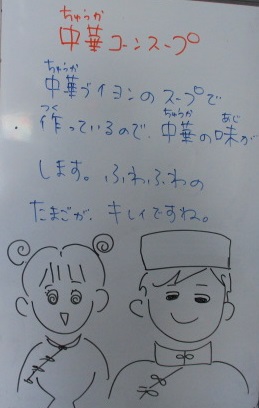 ちゅうか
中華コーンスープ
ちゅうか
中華ブイヨンのスープで
つく ちゅうか あじ
・作っているので、中華の味が
します。ふわふわの
たまごが、キレイですね。